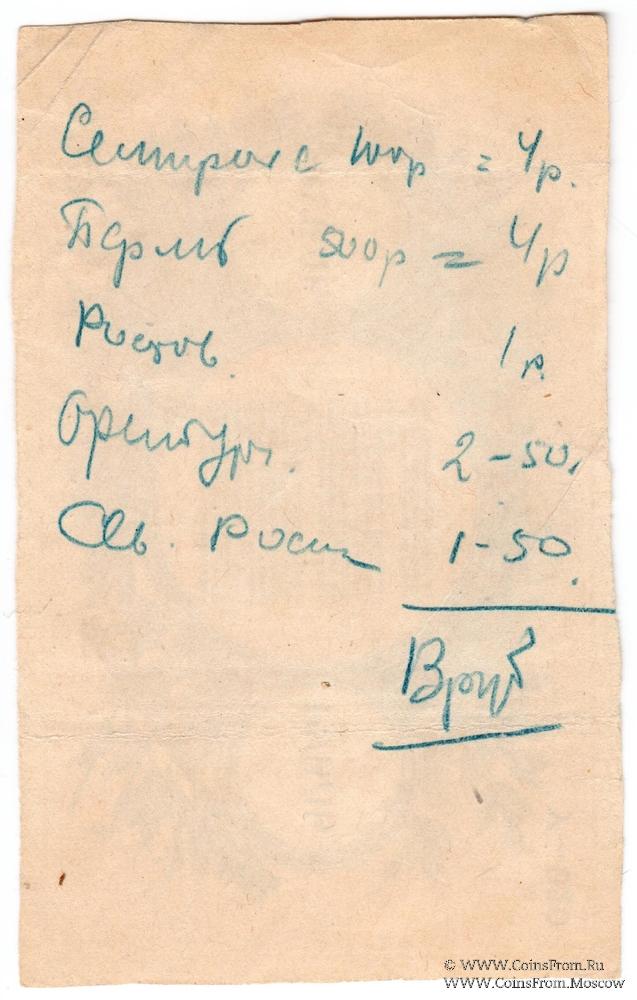 Семирече 100р = 4р.
Пермь 500р = 4р
Ростов. 1 р.
Оренбург. 2-50.
Сев. Росси 1-50.
13 руб
© WWW.CoinsFrom.Ru
WWW.CoinsFrom.Moscow